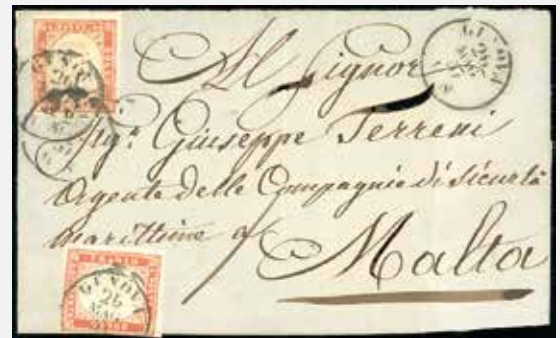 Al Signore
Sig.r Giuseppe Terreni
Agente delle Compagnie di Sicurtà
marittime
Malta
GENOVA
GENOVA
26
MAG
FRANCO